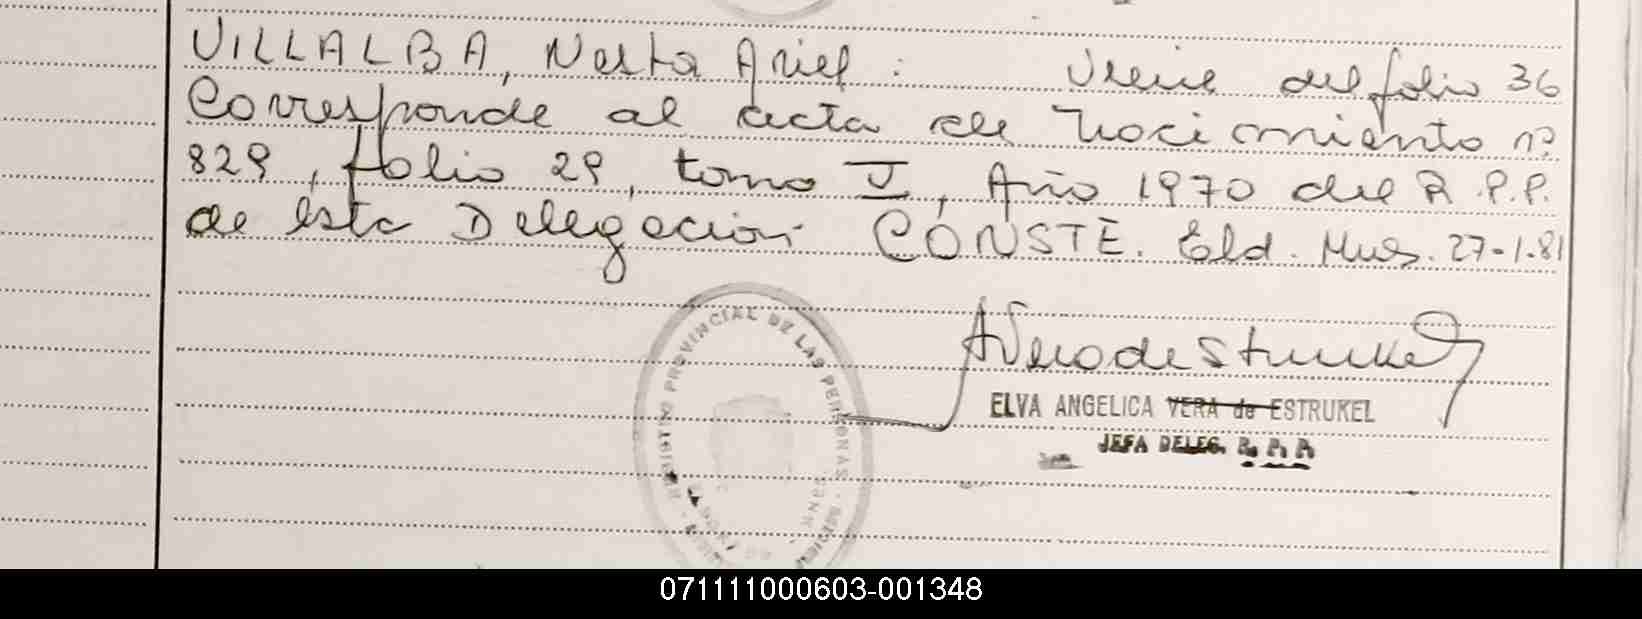 VILLALBA, Nestor Ariel: Viene del folio 36
Corresponde al acta de nacimiento nº
829, folio 29, tomo I, Año 1970 del R.P.P.
de esta Delegación CONSTE. Eld. Mnes. 27-1-81
AVera de Estrukel
ELVA ANGELICA VERA de ESTRUKEL
JEFA DELEG. R. P. P.
REGISTRO PROVINCIAL DE LAS PERSONAS
071111000603-001348